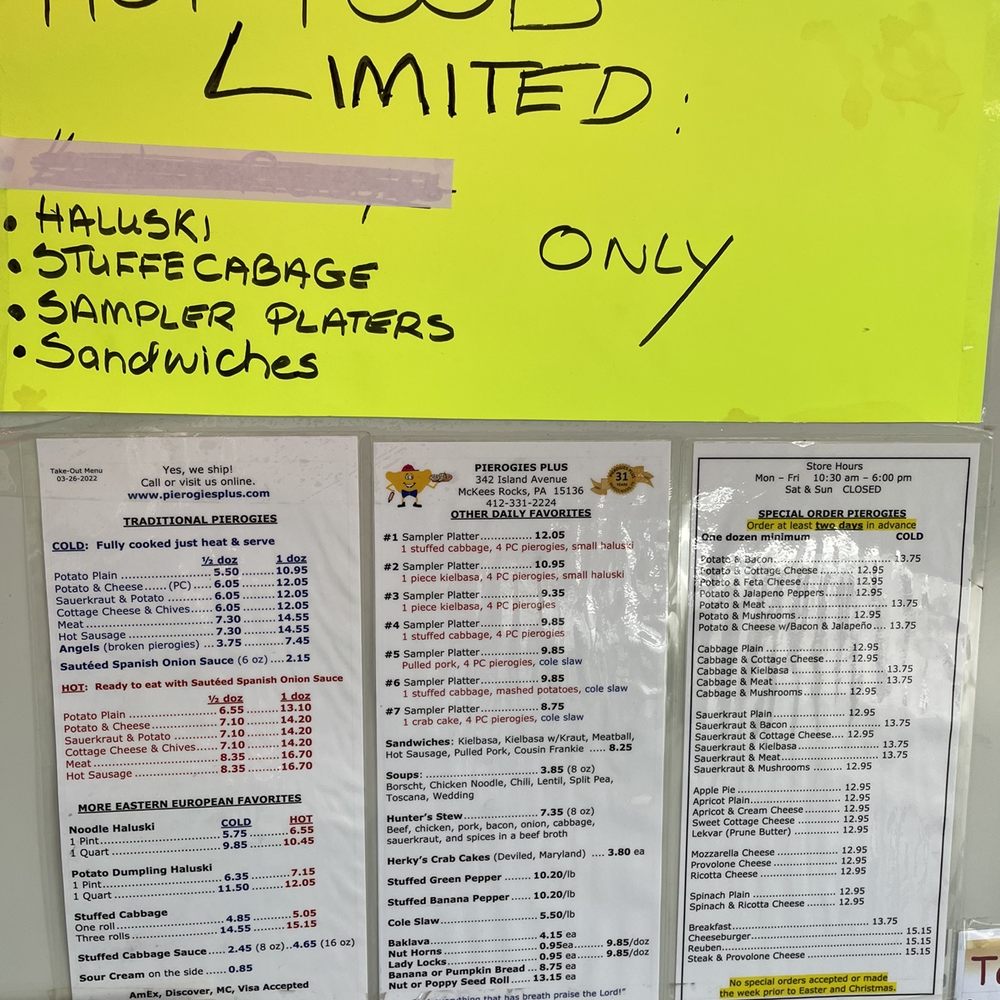 HOT FOOD
LIMITED:
• HALUSKI
• STUFFE CABAGE
• SAMPLER PLATERS
• Sandwiches
ONLY
Take-Out Menu
03-26-2022
Yes, we ship!
Call or visit us online.
www.pierogiesplus.com
TRADITIONAL PIEROGIES
COLD: Fully cooked just heat & serve
½ doz 1 doz
Potato Plain ..... 5.50 ..... 10.95
Potato & Cheese.....(PC) ..... 6.05 ..... 12.05
Sauerkraut & Potato ..... 6.05 ..... 12.05
Cottage Cheese & Chives..... 6.05 ..... 12.05
Meat..... 7.30 ..... 14.55
Hot Sausage ..... 7.30 ..... 14.55
Angels (broken pierogies) ... 3.75 ..... 7.45
Sautéed Spanish Onion Sauce (6 oz) ....2.15
HOT: Ready to eat with Sautéed Spanish Onion Sauce
½ doz 1 doz
Potato Plain ..... 6.55 ..... 13.10
Potato & Cheese..... 7.10 ..... 14.20
Sauerkraut & Potato ..... 7.10 ..... 14.20
Cottage Cheese & Chives..... 7.10 ..... 14.20
Meat ..... 8.35 ..... 16.70
Hot Sausage ..... 8.35 ..... 16.70
MORE EASTERN EUROPEAN FAVORITES
Noodle Haluski COLD HOT
1 Pint..... 5.75 ..... 6.55
1 Quart ..... 9.85 ..... 10.45
Potato Dumpling Haluski
1 Pint..... 6.35 ..... 7.15
1 Quart ..... 11.50 ..... 12.05
Stuffed Cabbage
One roll ..... 4.85 ..... 5.05
Three rolls ..... 14.55 ..... 15.15
Stuffed Cabbage Sauce.... 2.45 (8 oz)..4.65 (16 oz)
Sour Cream on the side ..... 0.85
AmEx, Discover, MC, Visa Accepted
PIEROGIES PLUS
342 Island Avenue
McKees Rocks, PA 15136
412-331-2224
31
YEARS
OTHER DAILY FAVORITES
#1 Sampler Platter..... 12.05
1 stuffed cabbage, 4 PC pierogies, small haluski
#2 Sampler Platter..... 10.95
1 piece kielbasa, 4 PC pierogies, small haluski
#3 Sampler Platter..... 9.35
1 piece kielbasa, 4 PC pierogies
#4 Sampler Platter..... 9.85
1 stuffed cabbage, 4 PC pierogies
#5 Sampler Platter..... 9.85
Pulled pork, 4 PC pierogies, cole slaw
#6 Sampler Platter..... 9.85
1 stuffed cabbage, mashed potatoes, cole slaw
#7 Sampler Platter..... 8.75
1 crab cake, 4 PC pierogies, cole slaw
Sandwiches: Kielbasa, Kielbasa w/Kraut, Meatball,
Hot Sausage, Pulled Pork, Cousin Frankie ..... 8.25
Soups: ..... 3.85 (8 oz)
Borscht, Chicken Noodle, Chili, Lentil, Split Pea,
Toscana, Wedding
Hunter's Stew..... 7.35 (8 oz)
Beef, chicken, pork, bacon, onion, cabbage,
sauerkraut, and spices in a beef broth
Herky's Crab Cakes (Deviled, Maryland) .... 3.80 ea
Stuffed Green Pepper ..... 10.20/lb
Stuffed Banana Pepper ..... 10.20/lb
Cole Slaw..... 5.50/lb
Baklava..... 4.15 ea
Nut Horns ..... 0.95ea..... 9.85/doz
Lady Locks..... 0.95ea ..... 9.85/doz
Banana or Pumpkin Bread ... 8.75 ea
Nut or Poppy Seed Roll..... 13.15 ea
everything that has breath praise the Lord!"
Store Hours
Mon – Fri 10:30 am – 6:00 pm
Sat & Sun CLOSED
SPECIAL ORDER PIEROGIES
Order at least two days in advance
One dozen minimum COLD
Potato & Bacon..... 13.75
Potato & Cottage Cheese..... 12.95
Potato & Feta Cheese..... 12.95
Potato & Jalapeno Peppers..... 12.95
Potato & Meat ..... 13.75
Potato & Mushrooms ..... 12.95
Potato & Cheese w/Bacon & Jalapeño.... 13.75
Cabbage Plain ..... 12.95
Cabbage & Cottage Cheese..... 12.95
Cabbage & Kielbasa ..... 13.75
Cabbage & Meat ..... 13.75
Cabbage & Mushrooms..... 12.95
Sauerkraut Plain..... 12.95
Sauerkraut & Bacon ..... 13.75
Sauerkraut & Cottage Cheese.... 12.95
Sauerkraut & Kielbasa ..... 13.75
Sauerkraut & Meat..... 13.75
Sauerkraut & Mushrooms ..... 12.95
Apple Pie ..... 12.95
Apricot Plain..... 12.95
Apricot & Cream Cheese ..... 12.95
Sweet Cottage Cheese ..... 12.95
Lekvar (Prune Butter) ..... 12.95
Mozzarella Cheese ..... 12.95
Provolone Cheese ..... 12.95
Ricotta Cheese ..... 12.95
Spinach Plain ..... 12.95
Spinach & Ricotta Cheese ..... 12.95
Breakfast..... 13.75
Cheeseburger..... 15.15
Reuben..... 15.15
Steak & Provolone Cheese ..... 15.15
No special orders accepted or made
the week prior to Easter and Christmas.